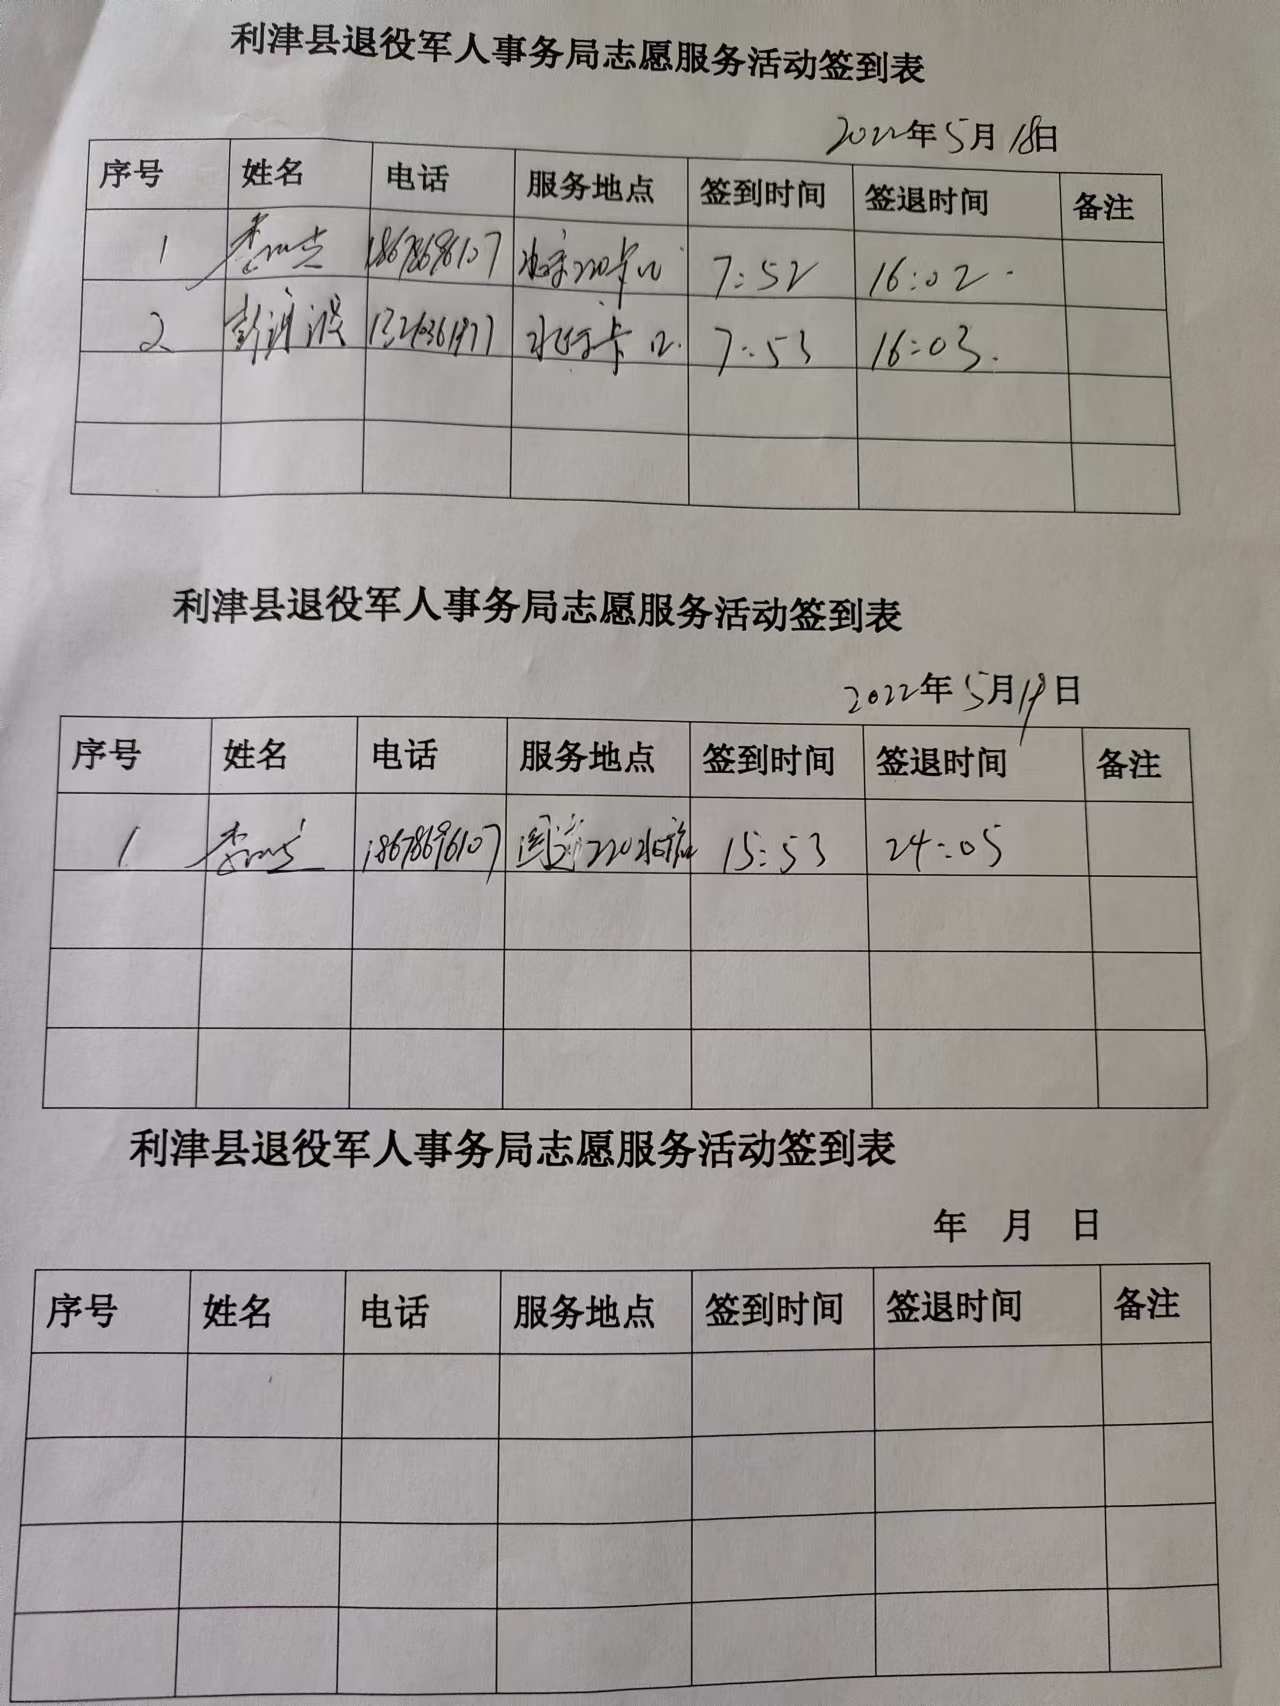 利津县退役军人事务局志愿服务活动签到表
2022年5月18日
序号 姓名 电话 服务地点 签到时间 签退时间 备注
1 18678696107 7:52 16:02
2 彭 卡口 7:53 16:03
利津县退役军人事务局志愿服务活动签到表
2022年5月19日
序号 姓名 电话 服务地点 签到时间 签退时间 备注
1 18678696107 国道220 15:53 24:05
利津县退役军人事务局志愿服务活动签到表
年 月 日
序号 姓名 电话 服务地点 签到时间 签退时间 备注